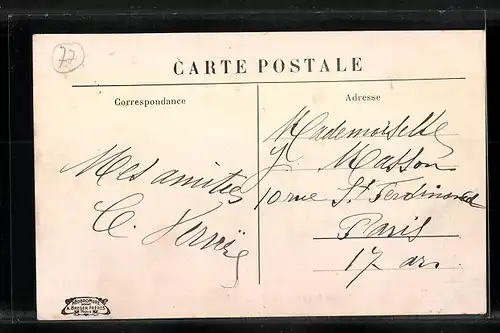 77
CARTE POSTALE
Correspondance
Adresse
Mes amitiés
Mademoiselle
Y. Masson
10 rue St Ferdinand
Paris
17 arr.
A. BREGER FRÈRES
PARIS